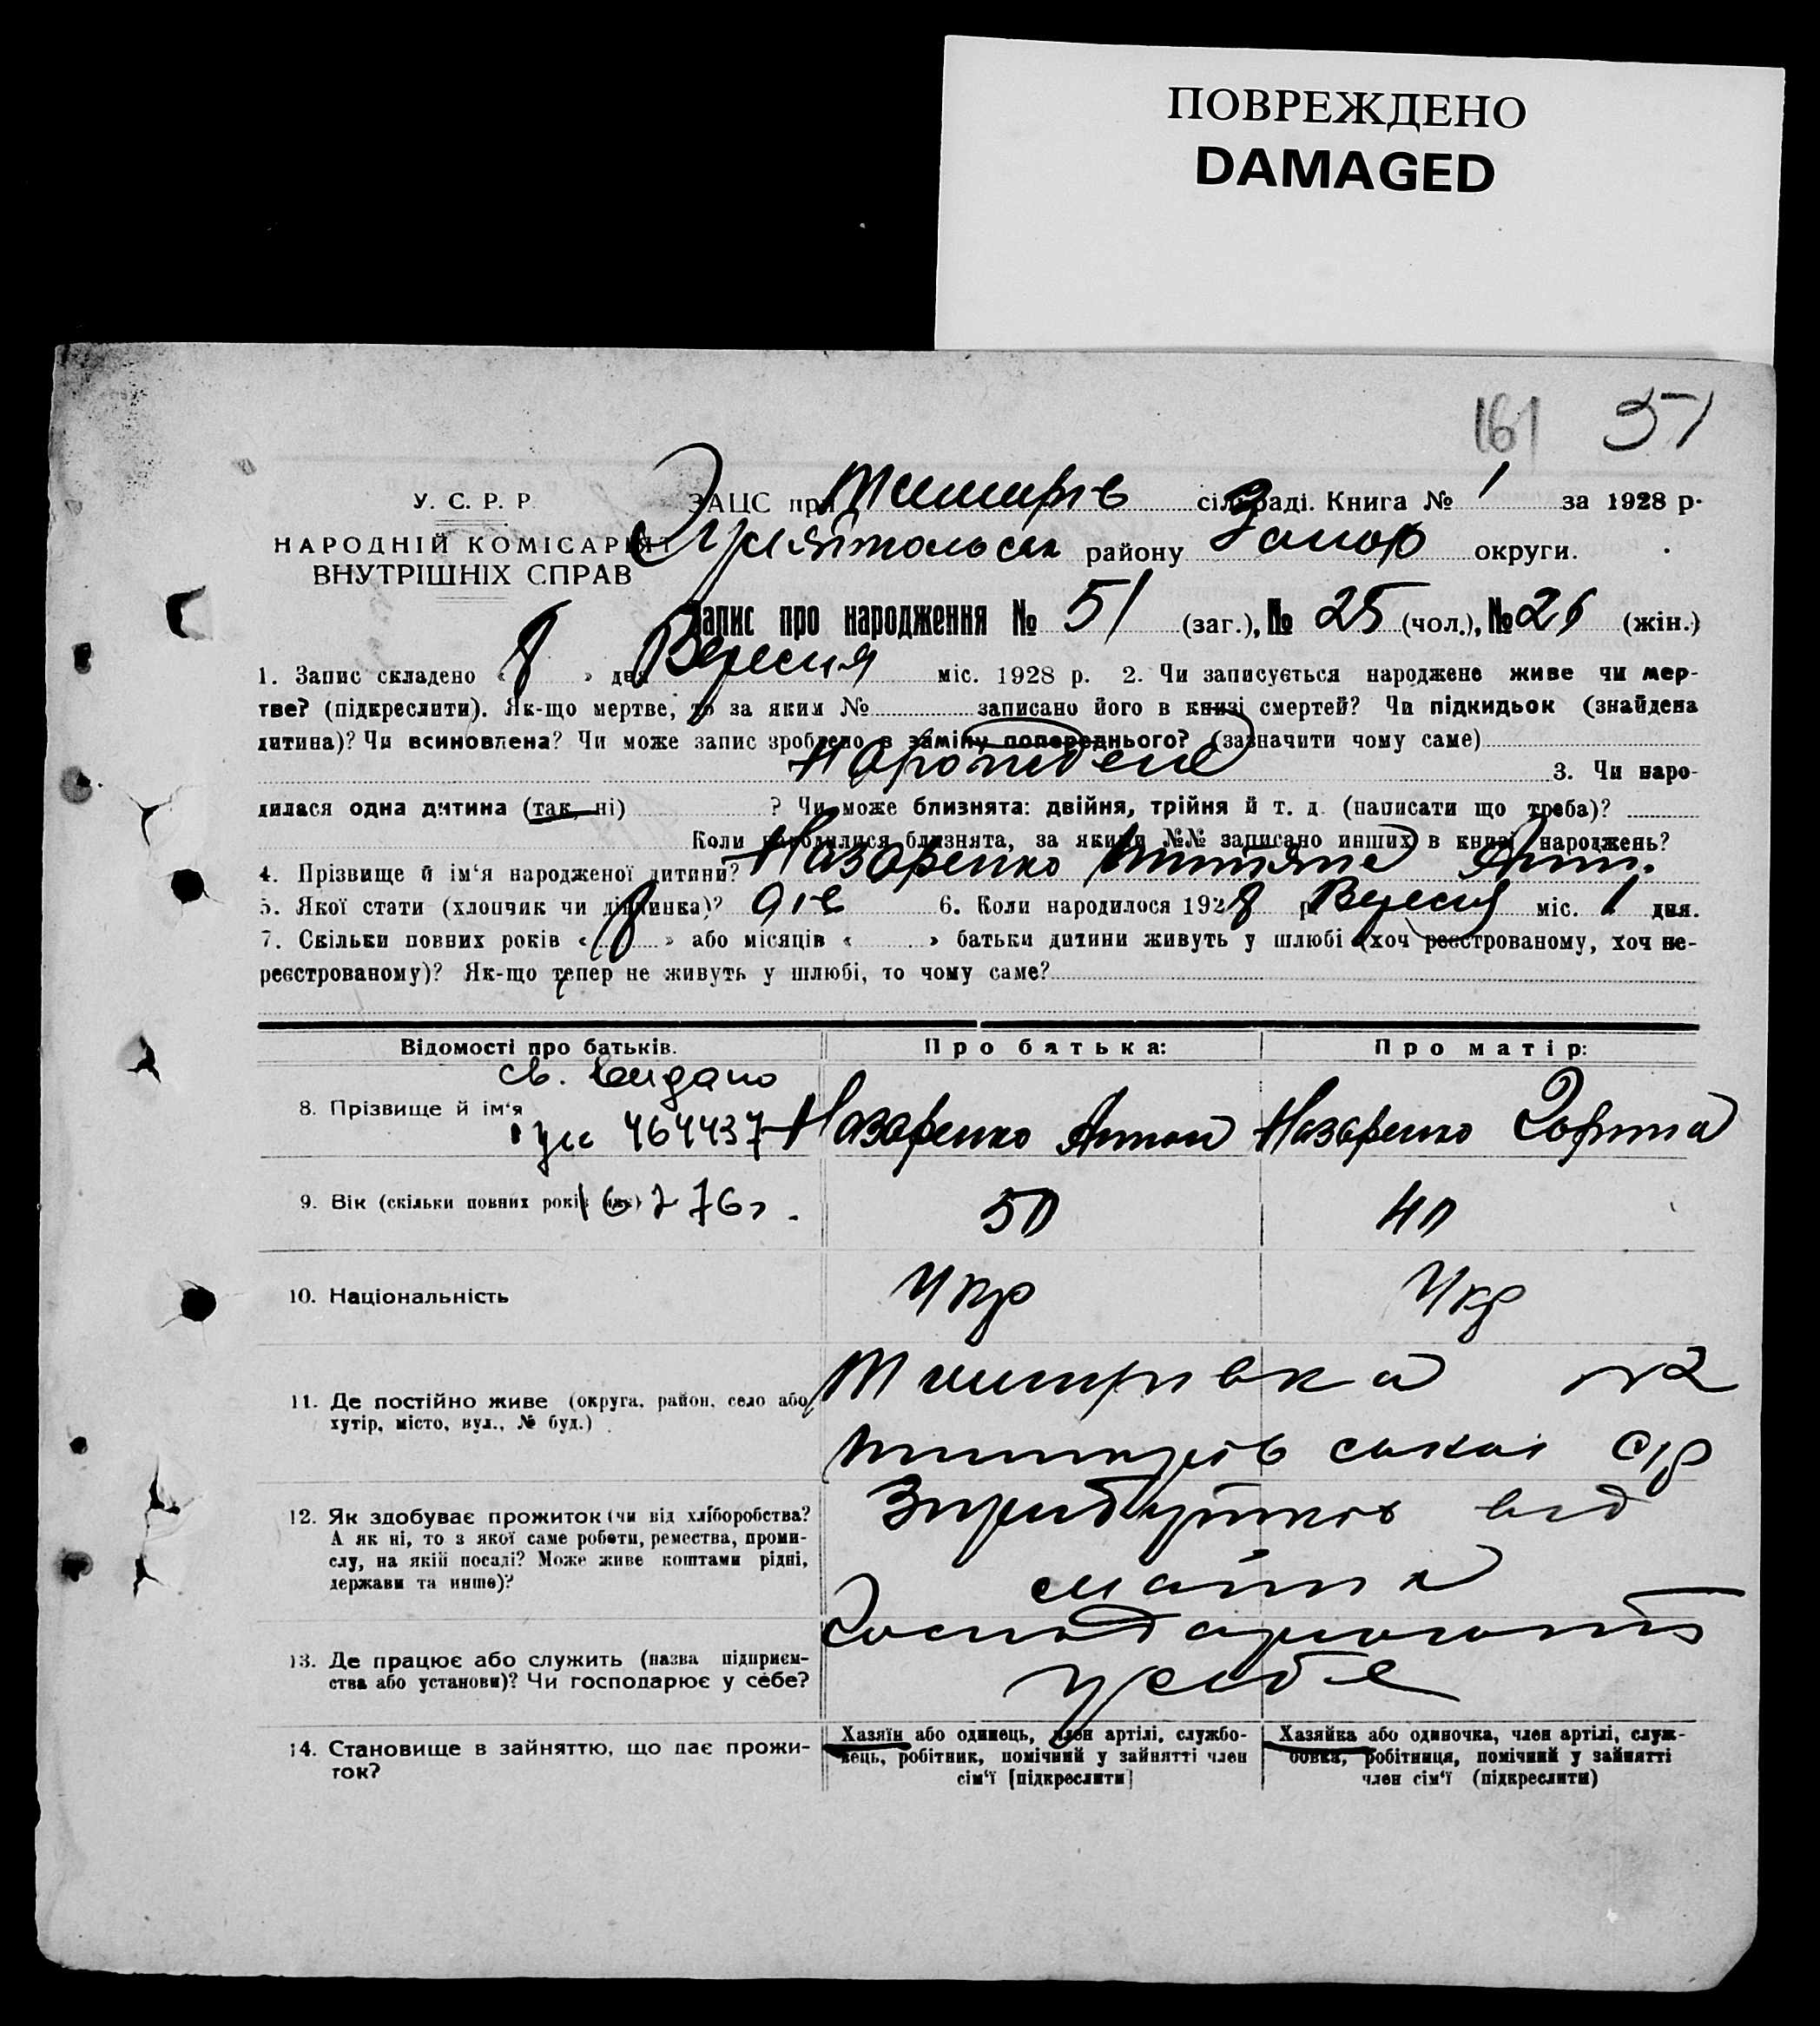 ПОВРЕЖДЕНО
DAMAGED
161 51
У. С. Р. Р.
НАРОДНІЙ КОМІСАРІЯТ
ВНУТРІШНІХ СПРАВ
ЗАЦС при сільраді. Книга № 1 за 1928 р.
району Запор округи.
Запис про народження № 51 (заг.), № 25 (чол.), № 26 (жін.)
1. Запис складено « 8 » дня Вересня міс. 1928 р. 2. Чи записується народжене живе чи мер-
тве? (підкреслити). Як-що мертве, то за яким № записано його в книзі смертей? Чи підкидьок (знайдена
дитина)? Чи всиновлена? Чи може запис зроблено в заміну попереднього? (зазначити чому саме)
3. Чи наро-
дилася одна дитина (так, ні) ? Чи може близнята: двійня, трійня й т. д. (написати що треба)?
Коли народилися близнята, за якими №№ записано инших в книзі народжень?
4. Прізвище й ім'я народженої дитини? Назаренко Ант.
5. Якої стати (хлопчик чи дівчинка)? дів 6. Коли народилося 1928 р Вересня міс. 1 дня.
7. Скільки повних років « » або місяців « » батьки дитини живуть у шлюбі (хоч реєстрованому, хоч не-
реєстрованому)? Як-що тепер не живуть у шлюбі, то чому саме?
Відомості про батьків. Про батька: Про матір:
св. видано
8. Прізвище й ім'я Назаренко Антон Назаренко
464437
9. Вік (скільки повних років має) 50 40
16 7 76 г.
10. Національність Укр Укр
11. Де постійно живе (округа, район, село або
хутір, місто, вул., № буд.)
12. Як здобуває прожиток (чи від хліборобства? від
А як ні, то з якої саме роботи, ремества, проми-
слу, на якій посаді? Може живе коштами рідні,
держави та инше)? майна
13. Де працює або служить (назва підприєм-
ства або установи)? Чи господарює у себе? у себе
14. Становище в зайняттю, що дає прожи-
ток?
Хазяїн або одинець, член артілі, службо-
вець, робітник, помічний у зайнятті член
сім'ї [підкреслити]
Хазяйка або одиночка, член артілі, служ-
бовка, робітниця, помічний у зайнятті
член сім'ї (підкреслити)